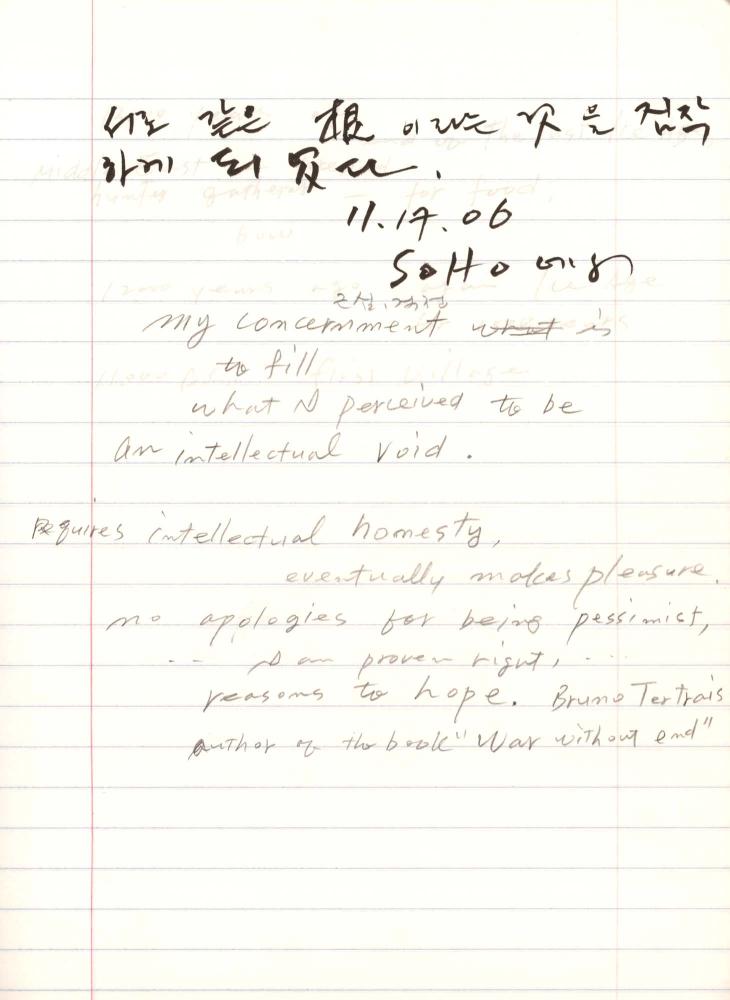 서로 같은 根 이라는 것 을 짐작
하게 되 었 다.
11.17.06
SOHO 에서
근심, 걱정
my concernment what is
to fill
what I perceived to be
an intellectual void.
Requires intellectual homesty,
eventually makes pleasure.
no apologies for being pessimist,
-- I am proven right, ...
reasons to hope. Bruno Tertrais
author of the book "War without end"